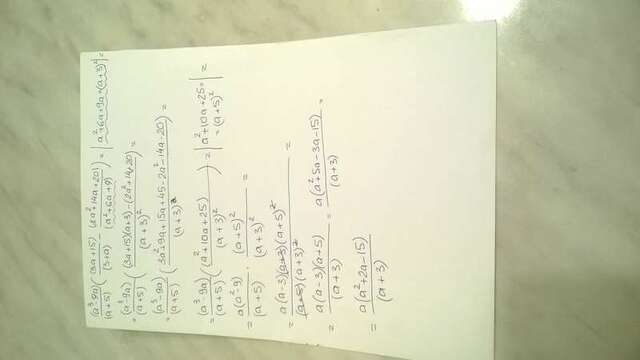 (a³-9a)/(a+5) ((3a+15)/(3+a) - (2a²+14a+20)/(a²+6a+9)) = |a²+6a+9a=(a+3)²| =
= (a³-9a)/(a+5) ((3a+15)(a+3)-(2a²+14+20)/(a+3)²) =
= (a³-9a)/(a+5) (3a²+9a+15a+45-2a²-14a-20/(a+3)²) =
= (a³-9a)/(a+5) ((a²+10a+25)/(a+3)²) = |a²+10a+25= =(a+5)²| =
= a(a²-9)/(a+5) · (a+5)²/(a+3)² =
= a(a-3)(a+3)(a+5)²/(a+5)(a+3)² =
= a(a-3)(a+5)/(a+3) = a(a²+5a-3a-15)/(a+3) =
= a(a²+2a-15)/(a+3)